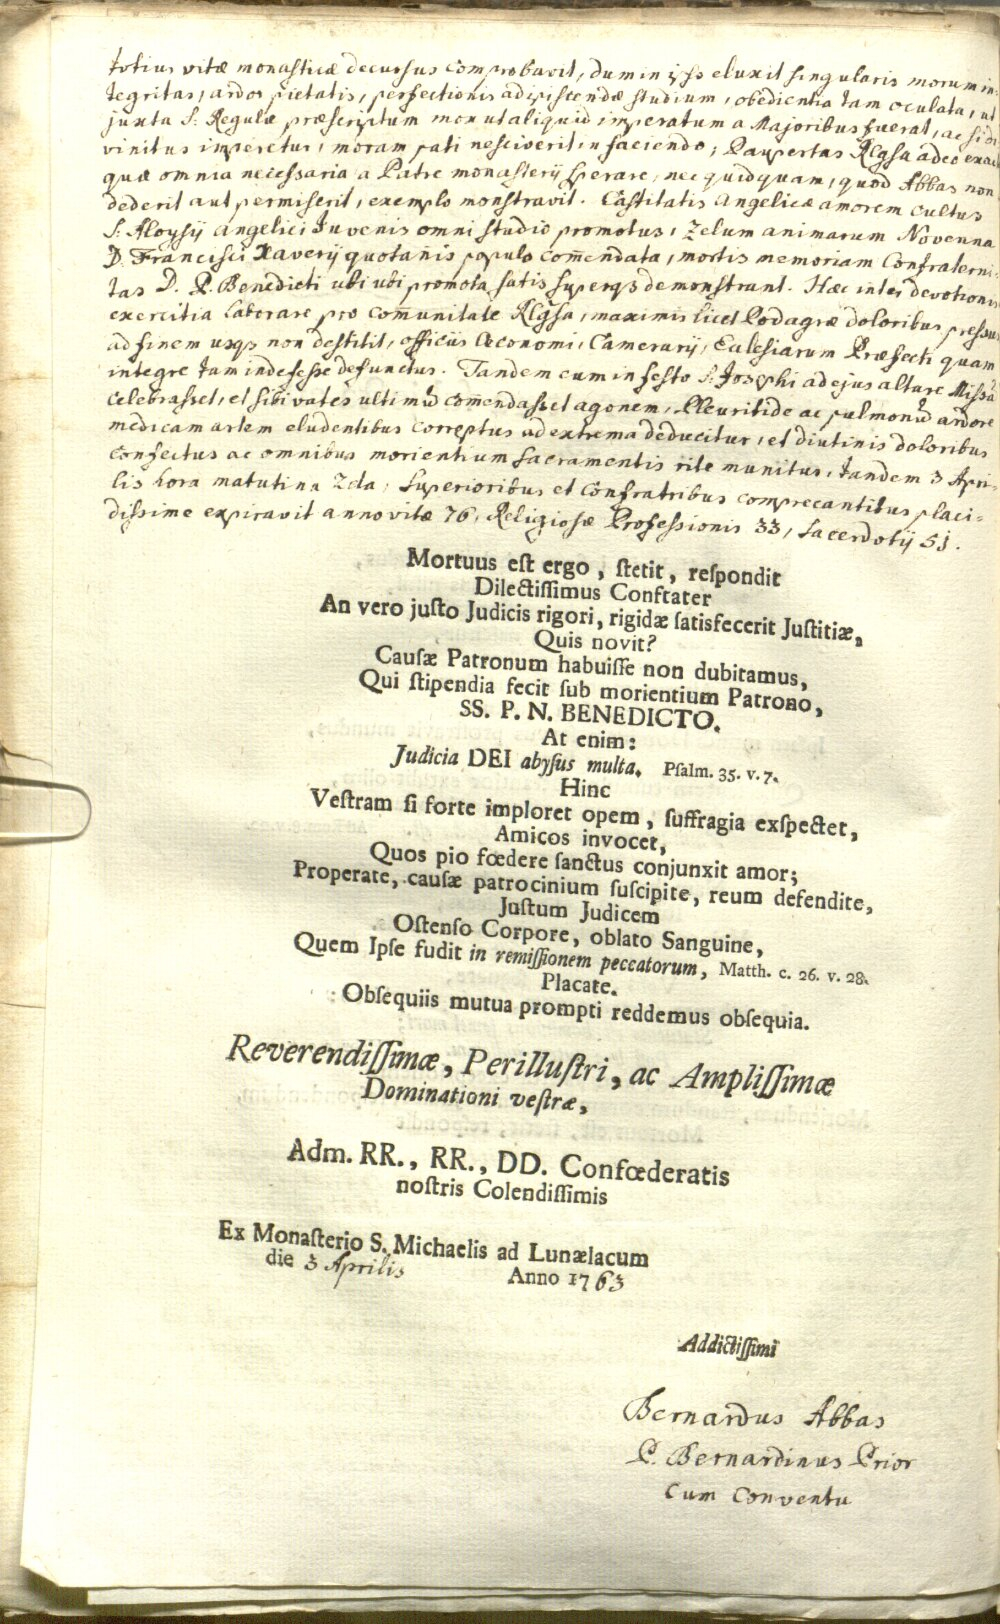 totius vitæ monasticæ decursus comprobavit, dum in ipso eluxit singularis morum in-
tegritas, ardor pietatis, perfectionis adipiscendæ studium, obedientia tam oculata, ut
juxta S. Regulæ præscriptum mox ut aliquid imperatum a Majoribus fuerat, ac si di
vinitus imperetur, moram pati nesciverit in faciendo; Paupertas Rlgsa adeo
quæ omnia necessaria a Patre monasterij sperare, nec quidquam, quod Abbas non
dederit aut permiserit, exemplo monstravit. Castitatis angelicæ amorem cultus
S. Aloysij angelici Juvenis omni studio promotus, Zelum animarum Novenna
D. Francisci Xaverij quotanis populo com̄endata, mortis memoriam Confraterni-
tas D. P. Benedicti ubi ubi promota satis superqs demonstrant. Hæc inter devotionis
exercitia laborare pro comunitate Rlgsa, maximis licet Podagræ doloribus pressus
ad finem usqs non destitit, officiis Oeconomi, Camerarij, Ecclesiarum Præfecti quam
integre tam indefesse defunctus. Tandem cum in festo S. Josephi ad ejus altare Missā
celebrasset, et sibi vates ultimū com̄endasset agonem, Pleuritide ac pulmonū ardore
medicam artem eludentibus correptus ad extrema deducitur, et diutinis doloribus
confectus ac omnibus morientium sacramentis rite munitus, tandem 3 Apri-
lis hora matutina 2da, Superioribus et Confratribus comprecantibus placi-
dissime expiravit anno vitæ 76, Religiosæ Professionis 33, Sacerdotij 51.
Mortuus eſt ergo, ſtetit, reſpondit
Dilectiſſimus Conftater
An vero juſto Judicis rigori, rigidæ ſatisfecerit Juſtitiæ,
Quis novit?
Cauſæ Patronum habuiſſe non dubitamus,
Qui ſtipendia fecit ſub morientium Patrono,
SS. P. N. BENEDICTO.
At enim:
Judicia DEI abyſus multa. Pſalm. 35. v. 7.
Hinc
Veſtram ſi forte imploret opem, ſuffragia exſpectet,
Amicos invocet,
Quos pio fœdere ſanctus conjunxit amor;
Properate, cauſæ patrocinium ſuſcipite, reum defendite,
Juſtum Judicem
Oſtenſo Corpore, oblato Sanguine,
Quem Ipſe fudit in remiſſionem peccatorum, Matth. c. 26. v. 28.
Placate.
Obſequiis mutua prompti reddemus obſequia.
Reverendiſſimæ, Perilluſtri, ac Ampliſſimæ
Dominationi veſtræ,
Adm. RR., RR., DD. Confœderatis
noſtris Colendiſſimis
Ex Monaſterio S. Michaelis ad Lunælacum
die 3 Aprilis Anno 1763
Addictiſſimi
Bernardus Abbas
P. Bernardinus Prior
Cum Conventu